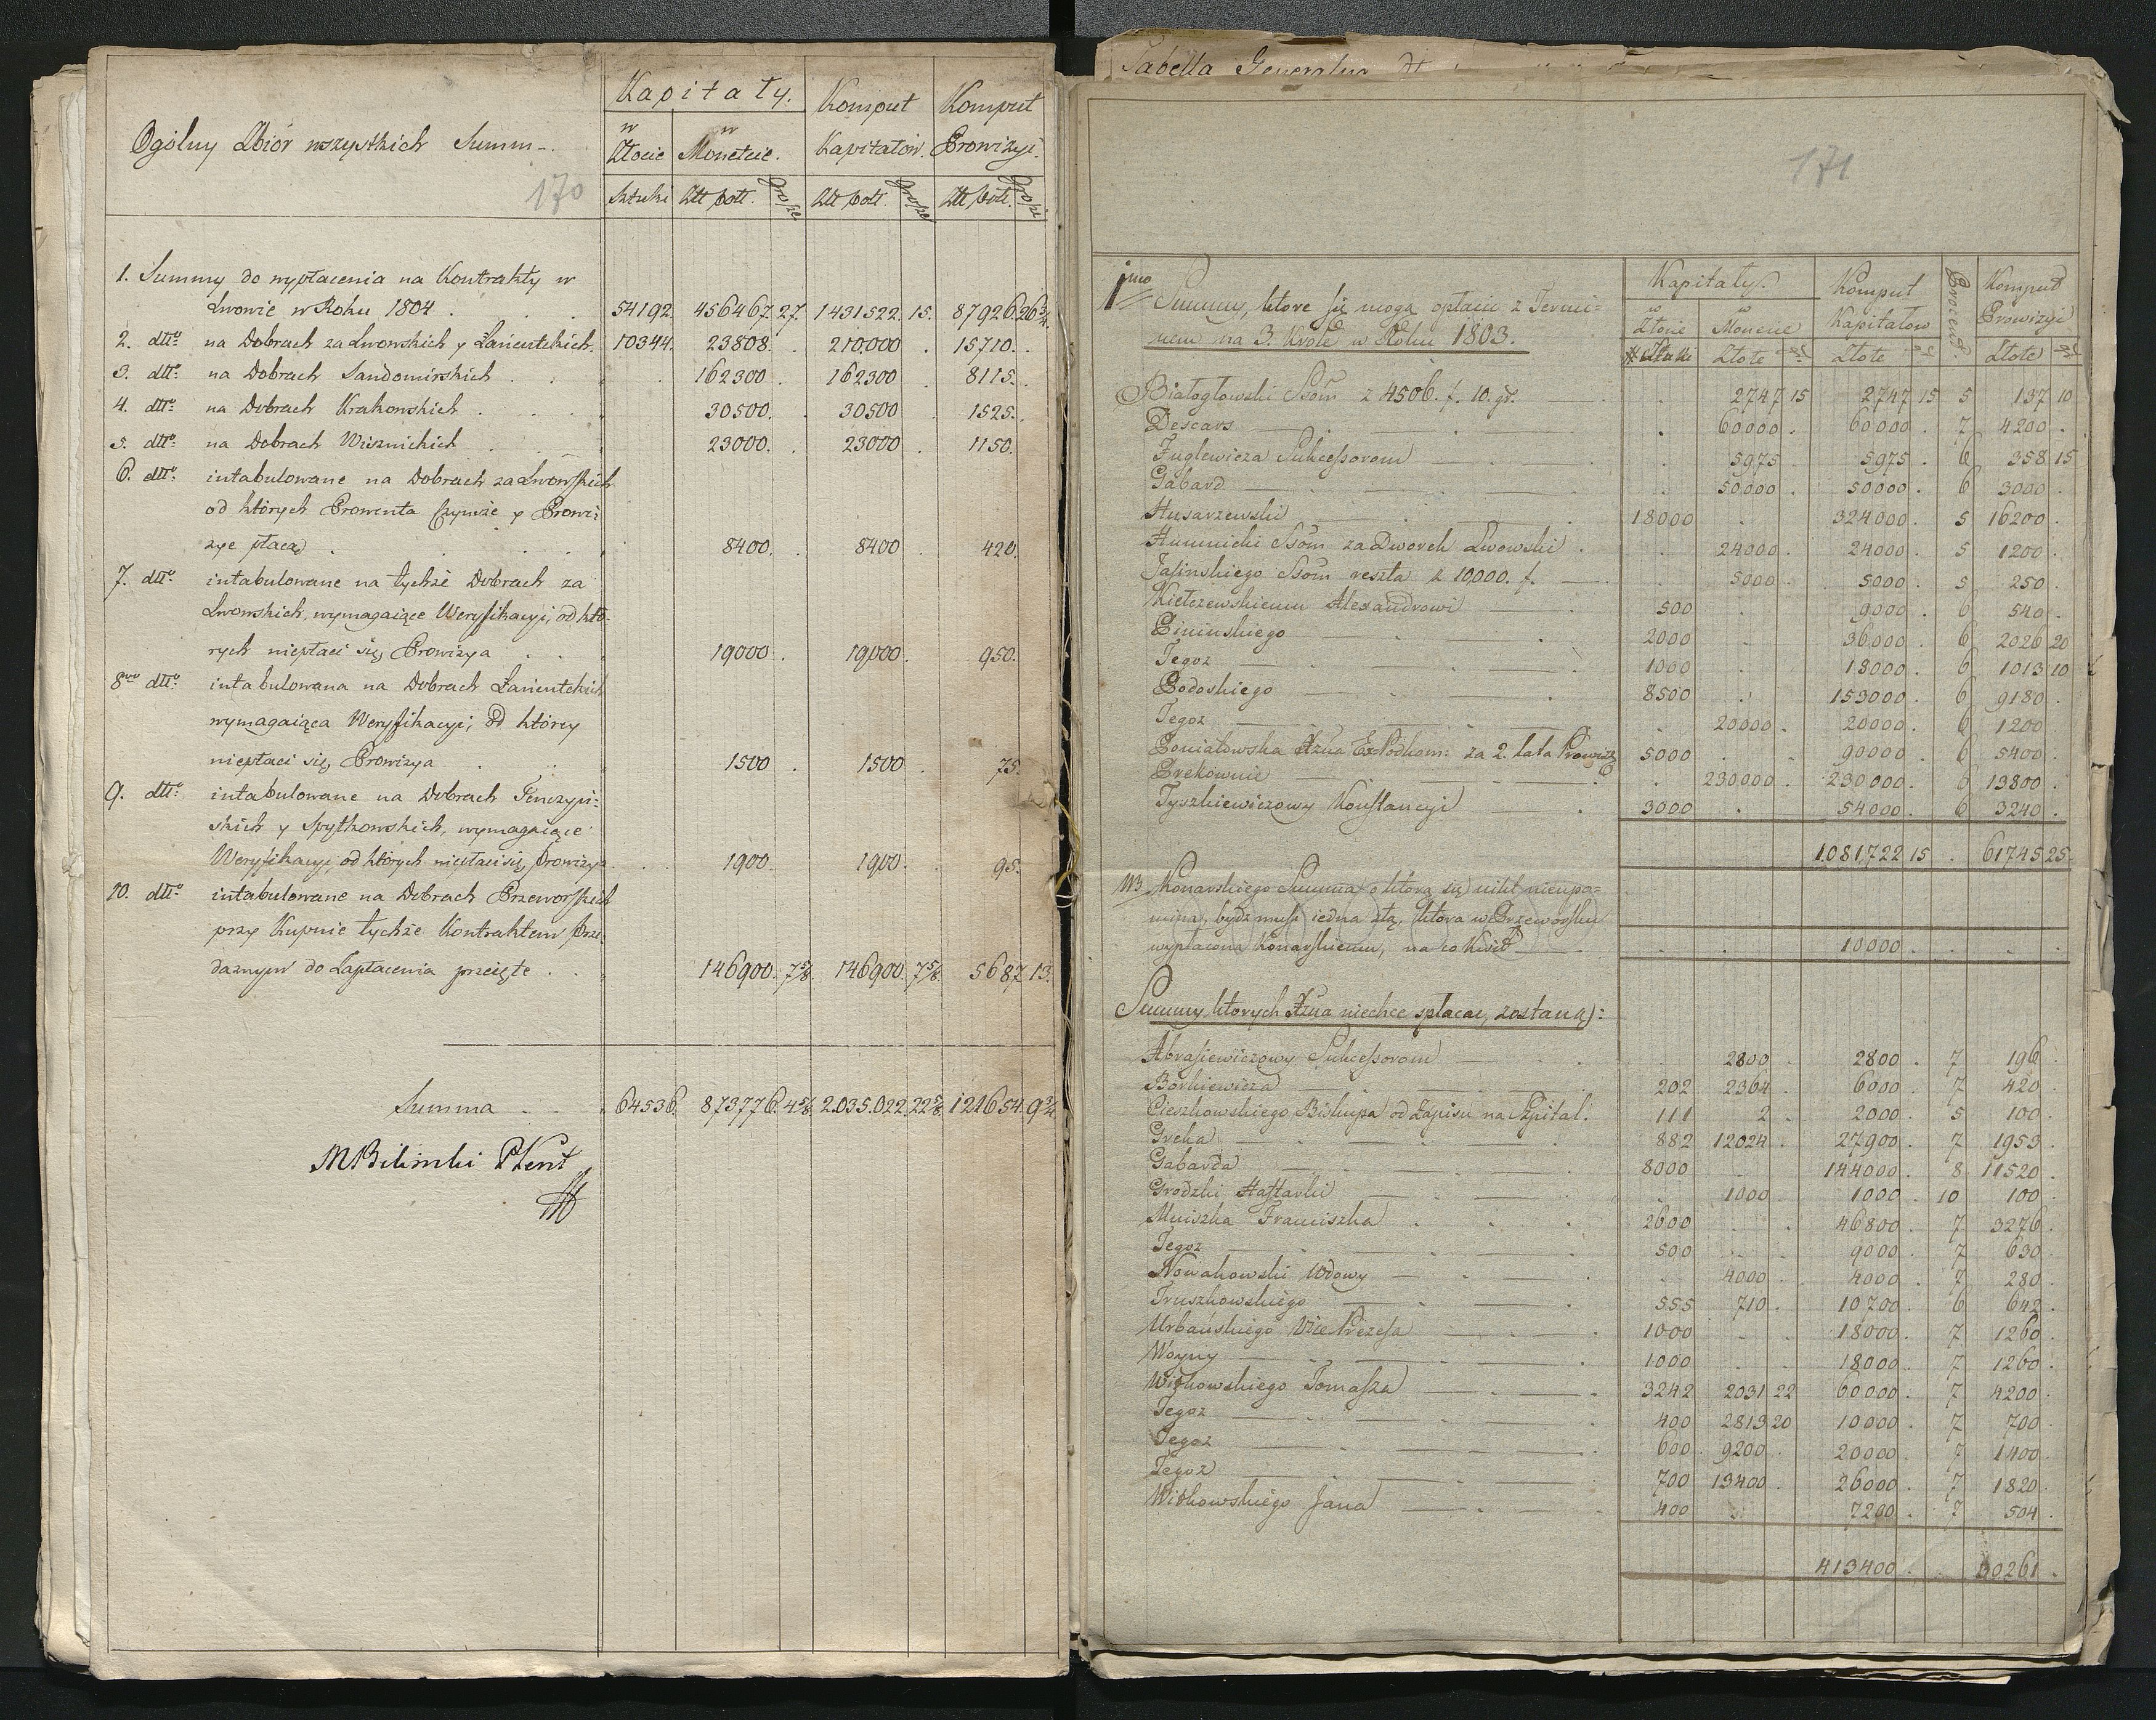 Kapitały. Komput Komput
Ogólny Zbiór wszystkich Summ w Złocie w Monecie. Kapitałów. Prowizyi.
170 Sztuki Złł poll. grosze Złł poll. grosze Złł poll. grosze
1. Summy do wypłacenia na Kontrakty w
Lwowie w Roku 1804 . 54192. 456467. 27. 1431522. 15. 87926. 26 3/4.
2. dtto na Dobrach za Lwowskich y Łańcutckich. 10344. 23808. . 210.000 . 15710. .
3. dtto na Dobrach Sandomirskich . . 162300 . 162300 . 8115. .
4. dtto na Dobrach Krakowskich . . 30500. . 30500 . 1525. .
5. dtto na Dobrach Wisznickich . . 23000. . 23000 . 1150.
6. dtto intabulowane na Dobrach za Lwowskich
od których Prowenta Czynsze y Prowi=
zye płacą . . 8400. . 8400 . 420.
7. dtto intabulowane na tychże Dobrach za
Lwowskich, wymagaiące Weryfikacyi, od któ=
rych niepłaci się Prowizya . . 19000 . 19000. 950.
8vo dtto intabulowana na Dobrach Łańcutckich
wymagaiąca Weryfikacyi; od którey
niepłaci się Prowizya . 1500 . 1500 . 75.
9. dtto intabulowane na Dobrach Tenczyń=
skich y Spytkowskich, wymagaiące
Weryfikacyi, od których niepłaci się Prowizya . . 1900. 1900. . 95.
10. dtto intabulowane na Dobrach Przeworskich
przy Kupnie tychże Kontraktem Prze=
dażnym do Zapłacenia przeięte . . 146900. 7 5/8. 146900. 7 5/8. 5687 13.
Summa . . 64536. 873776. 4 5/8. 2.035.022. 22 5/8. 121654. 9 3/4.
MBilinski Plent
Tabella Generalna
171
1mo Summy, ktore się mogą opłacic z Termi=
nem na 3. Krole w Roku 1803.
Kapitały. Komput Procent. Komput
w Złocie w Monecie Kapitałow Prowizyi
# Sztuki Złote gr. Złote gr. Złote gr.
Białogłowski Ssom z 4506. f. 10. gr. — . 2747 15 2747 15 5 137 10
Descars — . 60000 . 60000 . 7 4200 .
Fuglewicza Sukcessorom — . 5975 5975 . 6 358 15
Gabard — . 50000 . 50000 . 6 3000 .
Husarzewski 18000 . 324000 . 5 16200 .
Humnicki Ssom za Dworek Lwowski . . 24000 . 24000 . 5 1200 .
Jasinskiego Ssom reszta z 10,000. f. — . 5000 . 5000 . 5 250 .
Kiełczewskiemu Alexandrowi — 500 . 9000 . 6 540 .
Pininskiego — 2000 . 36000 . 6 2026 20
Tegoz — 1000 . 18000 . 6 1013 10
Podoskiego — 8500 . 153000 . 6 9180 .
Tegoz — . 20000 . 20000 . 6 1200 .
Poniatowska Xzna Ex Podkom: za 2. lata Prowizy 5000 . 90000 . 6 5400 .
Prekownie — . 230000 . 230000 . 6 13800 .
Tyszkiewiczowy Konstancyi — 3000 . 54000 . 6 3240 .
1.081.722 15 . 61745 25.
NB Konarskiego Summa o ktorą się nikt nieupa=
mina, bydz musi iedna ztą, ktora w Przeworsku
wypłacona Konarskiemu, na co Kwit — . . 10000 . . .
Summy ktorych Xzna niechce spłacac, zostaną:
Abrasiewiczowy Sukcessorom — . 2800 . 2800 . 7 196 .
Borkiewicza — 202 2364 . 6000 . 7 420 .
Cieszkowskiego Biskupa od Zapisu na Szpital. 111 2 . 2000 . 5 100 .
Greka — 882 12024 . 27900 . 7 1953 .
Gabarda — 8000 . 144000 . 8 11520 .
Grodzki Hastarki — . 1000 . 1000 . 10 100 .
Mniszka Franciszka . 2600 . 46800 . 7 3276 .
Tegoz — 500 . 9000 . 7 630 .
Nowakowski Wdowy — . 4000 . 4000 . 7 280 .
Truszkowskiego — 555 710 . 10700 . 6 642 .
Urbańskiego Vice Prezesa — 1000 . 18000 . 7 1260 .
Woyny — 1000 . 18000 . 7 1260 .
Wisłowskiego Tomasza — 3242 2031 22 60000 . 7 4200 .
Tegoz — 400 2813 20 10000 . 7 700 .
Tegoz — 600 . 9200 . 20000 . 7 1400 .
Tegoz — 700 13400 . 26000 . 7 1820 .
Witkowskiego Jana — 400 . 7200 . 7 504 .
413400 . . 30261 .